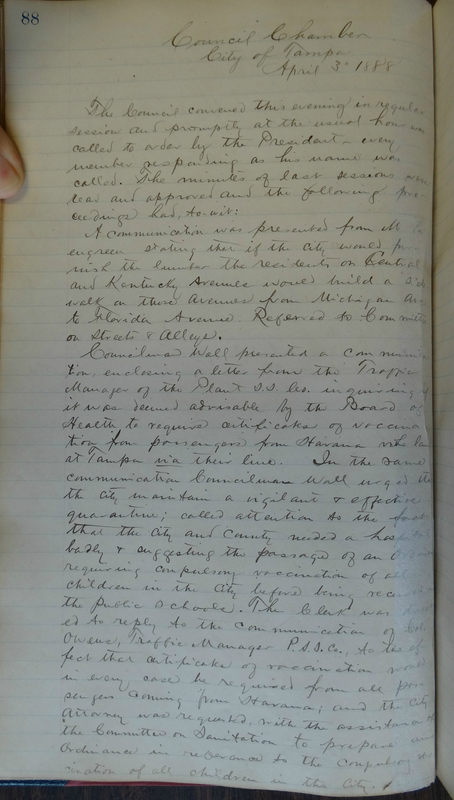 88
Council Chamber
City of Tampa
April 3d 1888
The Council convened this evening in regular
session and promptly at the usual hour was
called to order by the President - every
member responding as his name was
called. The minutes of last sessions were
read and approved and the following pro
ceedings had, to-wit:
A communication was presented from
stating that if the City would fur
nish the lumber the residents on Central
and Kentucky Avenues would build a side
walk on those Avenues from Michigan Av
to Florida Avenue. Referred to Committee
on Streets & Alleys.
Councilman Wall presented a communica
tion, enclosing a letter from the Traffic
Manager of the Plant S.S. Co. inquiring if
it was deemed advisable by the Board of
Health to require certificates of vaccina
tion from passengers from Havana who land
at Tampa via their line. In the same
communication Councilman Wall urged that
the City maintain a vigilant & effective
quarantine; called attention to the fact
that the City and County needed a hospital
badly & suggesting the passage of an Ordinance
requiring compulsory vaccination of all
children in the City before being received
the Public Schools. The Clerk was
ed to reply to the communication of
Owens, Traffic Manager P.S.S. Co., to the ef
fect that certificate of vaccination would
in every case be required from all pas
sengers coming from Havana; and the City
Attorney was requested, with the assistance of
the Committee on Sanitation to prepare an
Ordinance in reference to the compulsory vac
cination of all children in the City.